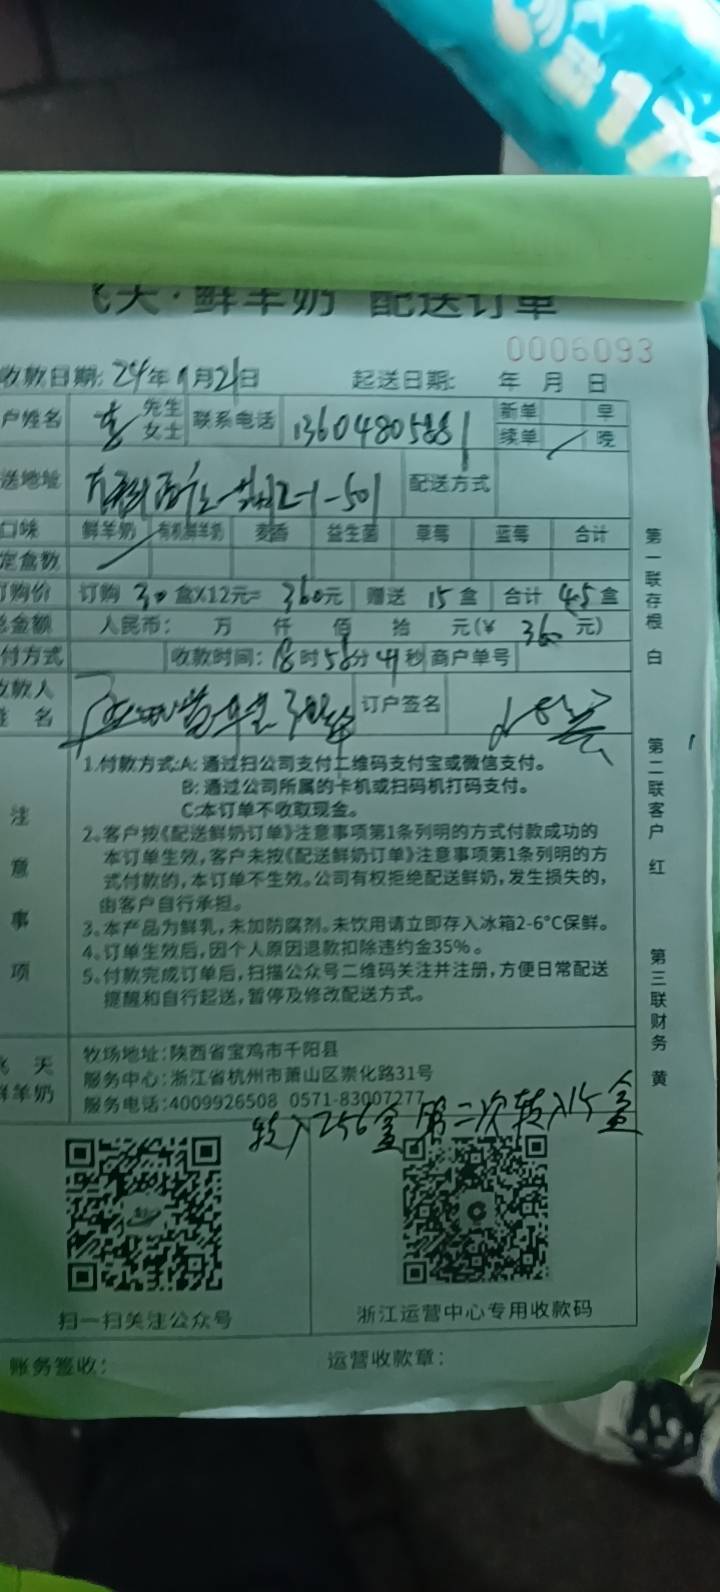 飞天·鲜羊奶 配送订单
0006093
收款日期: 24年1月21日 起送日期: 年 月 日
户姓名 李 先生 女士 联系电话 13604805881 新单 早
续单 晚
送地址 2-1-501 配送方式
口味 鲜羊奶 有机鲜羊奶 麦香 益生菌 草莓 蓝莓 合计
定盒数
订购价 订购 30 盒X12元= 360元 赠送 15盒 合计 45盒
总金额 人民币: 万 仟 佰 拾 元(¥ 360 元)
付方式 收款时间: 18时58分41秒 商户单号
收款人姓名 订户签名
注意事项
1.付款方式:A: 通过扫公司支付二维码支付宝或微信支付。
B: 通过公司所属的卡机或扫码机打码支付。
C:本订单不收取现金。
2。客户按《配送鲜奶订单》注意事项第1条列明的方式付款成功的
本订单生效,客户未按《配送鲜奶订单》注意事项第1条列明的方
式付款的,本订单不生效。公司有权拒绝配送鲜奶,发生损失的,
由客户自行承担。
3。本产品为鲜乳,未加防腐剂。未饮用请立即存入冰箱2-6°C保鲜。
4。订单生效后,因个人原因退款扣除违约金35%。
5。付款完成订单后,扫描公众号二维码关注并注册,方便日常配送
提醒和自行起送,暂停及修改配送方式。
飞天鲜羊奶
牧场地址:陕西省宝鸡市千阳县
服务中心:浙江省杭州市萧山区崇化路31号
服务电话:4009926508 0571-83007277
转入256盒 第二次转入15盒
扫一扫关注公众号 浙江运营中心专用收款码
账务签收: 运营收款章:
第一联存根 白
第二联客户 红
第三联财务 黄